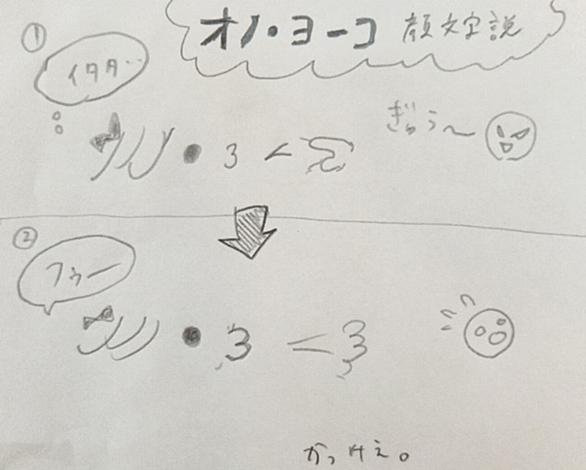 オノ・ヨーコ 顔文字説
①
イタタ…
ぎゅう〜
ノノノ・3<
②
フゥー
ノノノ・3<3
かっけぇ。